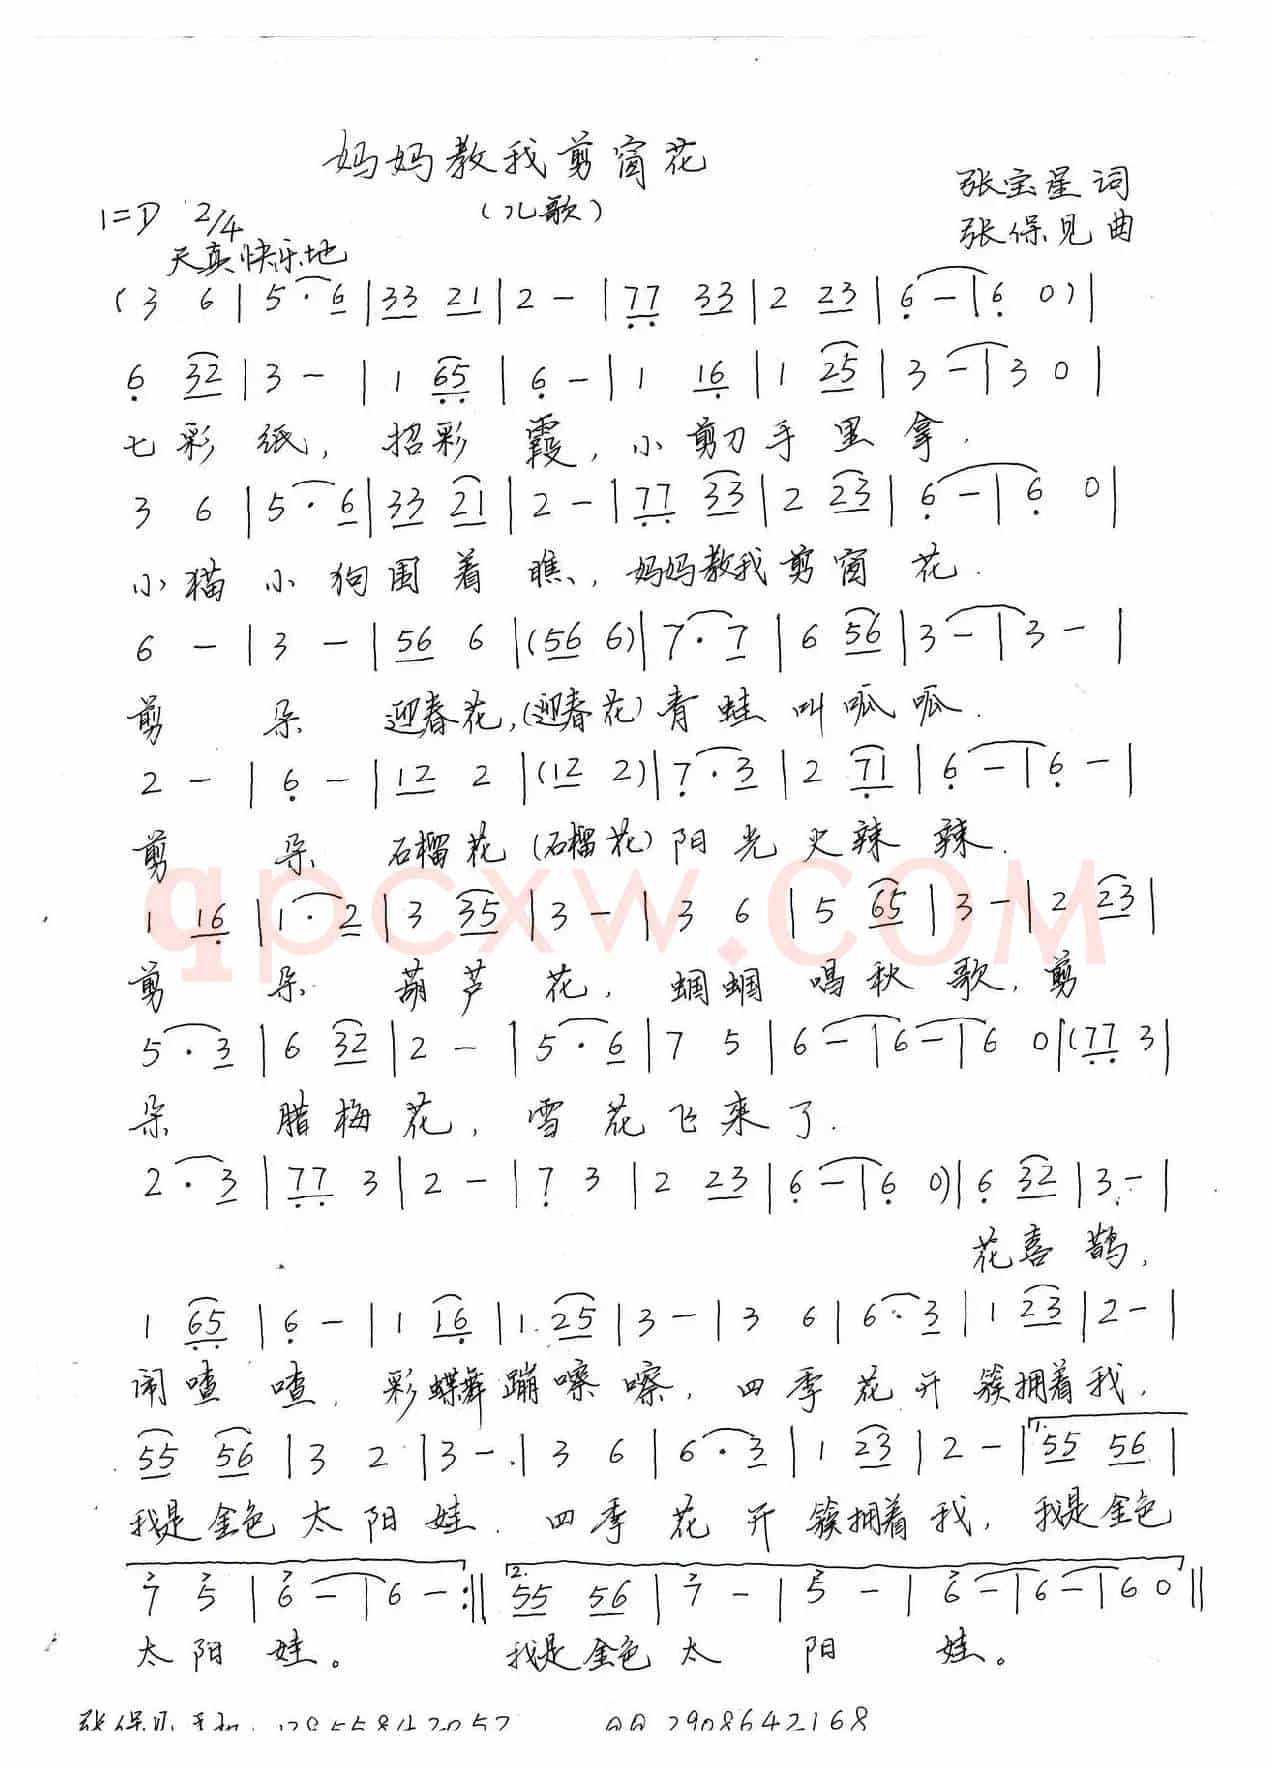 妈妈教我剪窗花
(儿歌)
张宝星 词
张保见 曲
1=D 2/4
天真快乐地
(3 6 | 5·6 | 33 21 | 2 - | 77 33 | 2 23 | 6 - | 6 0) |
6 32 | 3 - | 1 65 | 6 - | 1 16 | 1 25 | 3 - | 3 0 |
七彩纸, 招彩霞, 小剪刀手里拿.
3 6 | 5·6 | 33 21 | 2 - | 77 33 | 2 23 | 6 - | 6 0 |
小猫小狗围着瞧, 妈妈教我剪窗花.
6 - | 3 - | 56 6 | (56 6) | 7·7 | 6 56 | 3 - | 3 - |
剪朵迎春花,(迎春花)青蛙叫呱呱.
2 - | 6 - | 12 2 | (12 2) | 7·3 | 2 71 | 6 - | 6 - |
剪朵石榴花(石榴花)阳光火辣辣.
1 16 | 1·2 | 3 35 | 3 - | 3 6 | 5 65 | 3 - | 2 23 |
剪朵葫芦花, 蝈蝈唱秋歌, 剪
5·3 | 6 32 | 2 - | 5·6 | 7 5 | 6 - | 6 - | 6 0 | (77 3 |
朵腊梅花, 雪花飞来了.
2·3 | 77 3 | 2 - | 7 3 | 2 23 | 6 - | 6 0) | 6 32 | 3 - |
花喜鹊,
1 65 | 6 - | 1 16 | 1 25 | 3 - | 3 6 | 6·3 | 1 23 | 2 - |
闹喳喳, 彩蝶舞蹦嚓嚓, 四季花开簇拥着我,
55 56 | 3 2 | 3 - | 3 6 | 6·3 | 1 23 | 2 - | 1. 55 56 |
我是金色太阳娃. 四季花开簇拥着我, 我是金色
7 5 | 6 - | 6 - :|| 2. 55 56 | 7 - | 5 - | 6 - | 6 - | 6 0 ||
太阳娃。 我是金色太阳娃。
张保见手机: QQ2908642168
qpcxw.COM